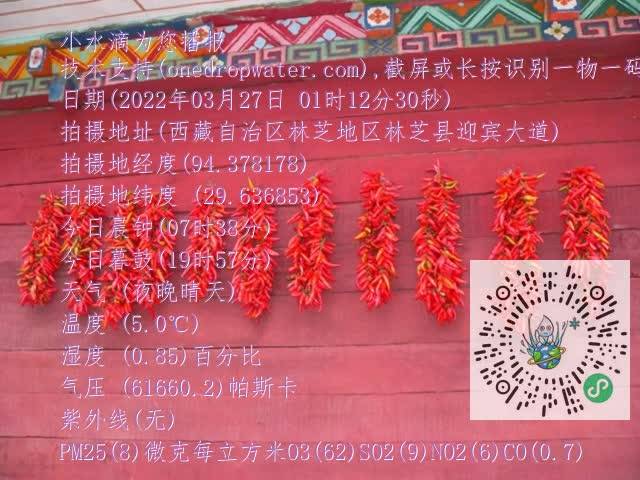 小水滴为您播报
技术支持(onedropwater.com),截屏或长按识别一物一码
日期(2022年03月27日 01时12分30秒)
拍摄地址(西藏自治区林芝地区林芝县迎宾大道)
拍摄地经度(94.378178)
拍摄地纬度 (29.636853)
今日晨钟(07时38分)
今日暮鼓(19时57分)
天气 (夜晚晴天)
温度 (5.0℃)
湿度 (0.85)百分比
气压 (61660.2)帕斯卡
紫外线(无)
PM25(8)微克每立方米O3(62)SO2(9)NO2(6)CO(0.7)